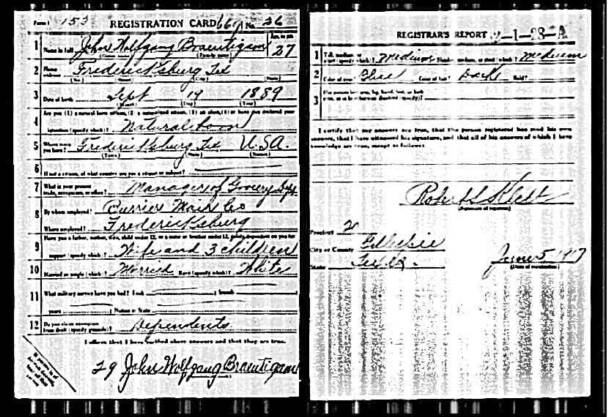 Form 1 153 REGISTRATION CARD No. 26
1 Name in full John Wolfgang Braeutigam 27
(Given name) (Family name)
2 Home address Fredericksburg Tex
3 Date of birth Sept 19 1889
(Month) (Day) (Year)
4 Are you (1) a natural-born citizen, (2) a naturalized citizen, (3) an alien, (4) or have you declared your
intention (specify which)? Natural born
5 Where were you born? Fredericksburg Tex U.S.A.
(Town) (State) (Nation)
6 If not a citizen, of what country are you a citizen or subject?
7 What is your present trade, occupation, or office? Manager of Grocery Dept
8 By whom employed?
Where employed? Fredericksburg
9 Have you a father, mother, wife, child under 12, or a sister or brother under 12, solely dependent on you for
support (specify which)? Wife and 3 children
10 Married or single (which)? Married Race (specify which)? White
11 What military service have you had? Rank ; branch
years ; Nation or State
12 Do you claim exemption from draft (specify grounds)? Dependents
I affirm that I have verified above answers and that they are true.
29 John Wolfgang Braeutigam
REGISTRAR'S REPORT
1 Tall, medium, or short (specify which)? Medium Slender, medium, or stout (which)? Medium
2 Color of eyes Color of hair Dark Bald?
3 Has person lost arm, leg, hand, foot, or both eyes, or is he otherwise disabled (specify)?
I certify that my answers are true, that the person registered has read his own
answers, that I have witnessed his signature, and that all of his answers of which I have
knowledge are true, except as follows:
(Signature of registrar)
Precinct 2
City or County Gillespie
State Texas June 5 '17
(Date of registration)